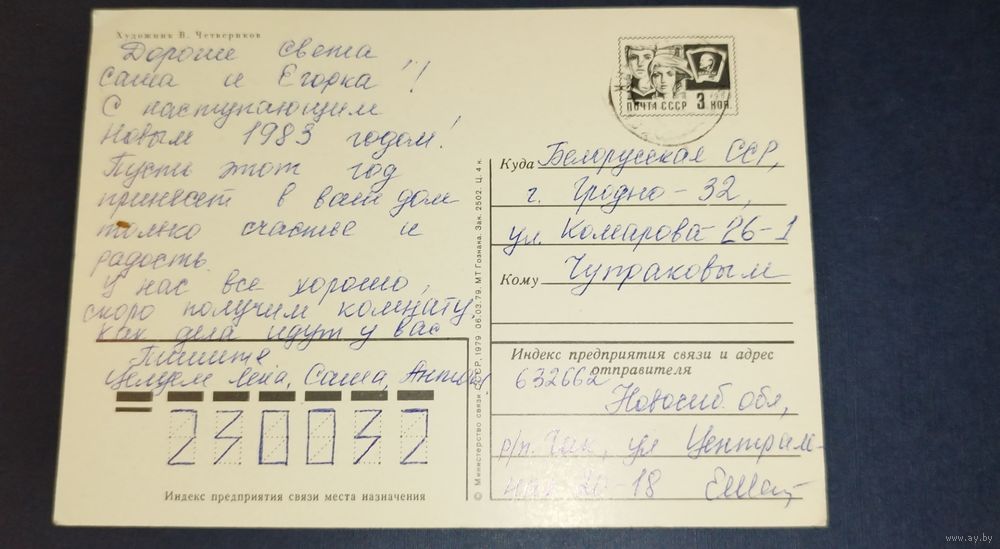 Художник В. Четвериков
Дорогие Света
Саша и Егорка!!
С наступающим
Новым 1983 годом!
Пусть этот год
принесет в ваш дом
только счастье и
радость.
У нас все хорошо,
скоро получим комнату.
Как дела идут у вас
Пишите
Целуем Лена, Саша, Антон
230032
Индекс предприятия связи места назначения
© Министерство связи СССР, 1979 06.03.79. МТ Гознака. Зак. 2502. Ц. 4 к.
ПОЧТА СССР 3 КОП.
Куда Белорусская ССР,
г. Гродно-32,
ул. Комарова 26-1
Кому Чупраковым
Индекс предприятия связи и адрес
отправителя
632662
Новосиб. обл,
р/п. ул Централь-
ная 20-18
www.ay.by